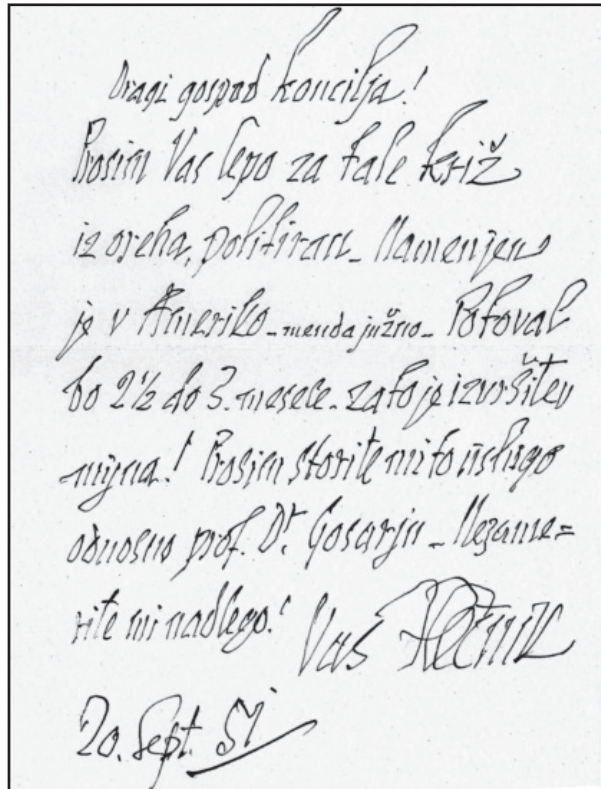 Dragi gospod Koncilja!
Prosim Vas lepo za tale križ
iz oreha, politiran_ Namenjen
je v Ameriko_menda južno_ Potoval
bo 2½ do 3. mesece_zato je izvršitev
nujna! Prosim storite mi to uslugo
odnosno prof. Dr. Gosarju_ Nezame=
rite mi nadlego! Vaš Plečnik
20. Sept. 51